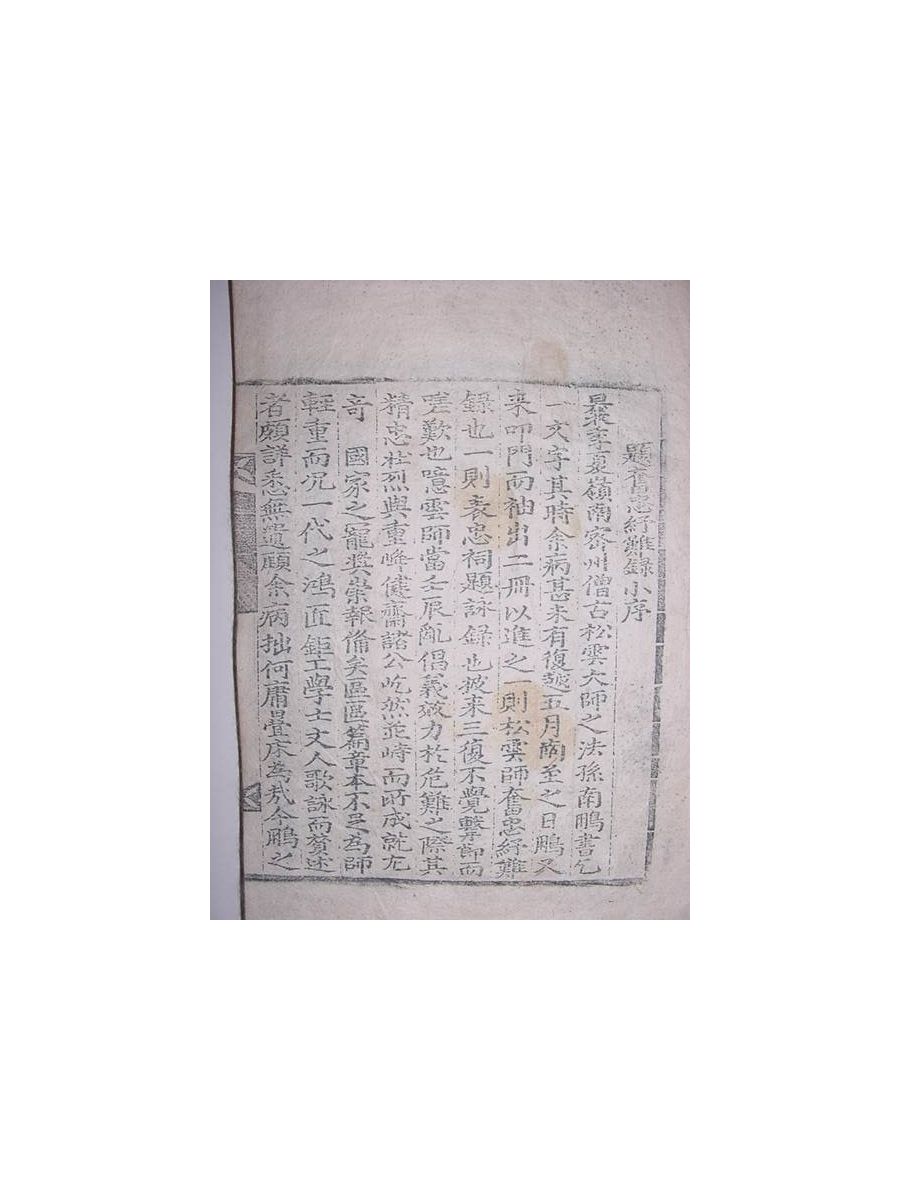 題奮忠紓難錄小序
季夏嶺南密州僧古松雲大師之法孫南鵬書乞
一文字其時余病甚未有復越五月南至之日鵬又
來叩門而袖出二冊以進之一則松雲師奮忠紓難
錄也一則表忠祠題詠錄也披來三復不覺擊節而
嗟歎也噫雲師當壬辰亂倡義效力於危難之際其
精忠壯烈與重峰健齋諸公屹然並峙而所成就尤
奇 國家之寵獎崇報備矣區區篇章本不足為師
輕重而況一代之鴻匠鉅工學士文人歌詠而贊述
者頗詳悉無遺顧余病拙何庸疊床為哉今鵬之